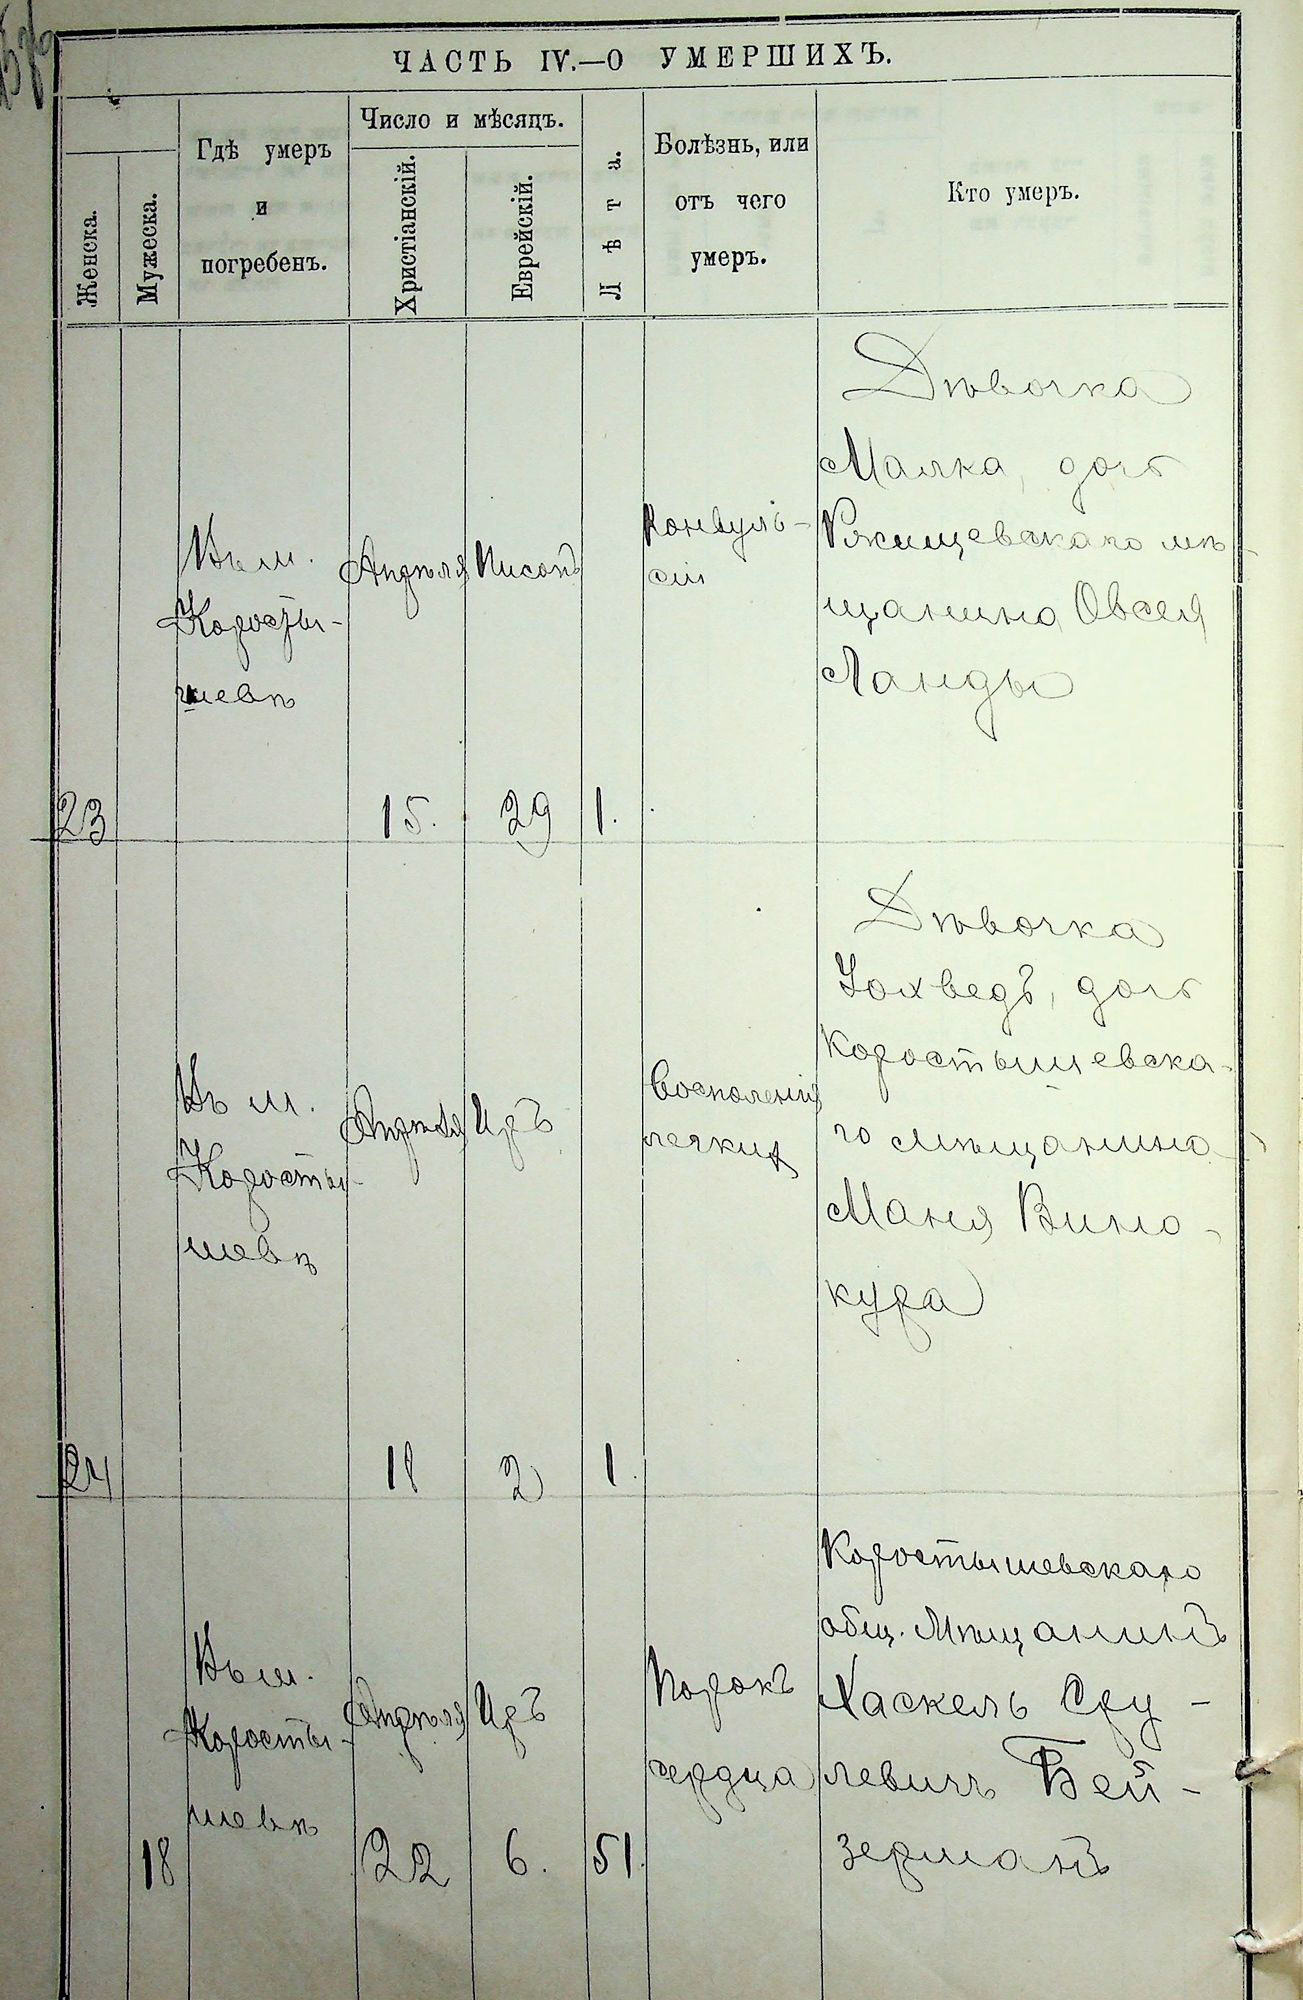 ЧАСТЬ IV.—О УМЕРШИХЪ.
Женска.
Мужеска.
Гдѣ умеръ
и
погребенъ.
Число и мѣсяцъ.
Христіанскій.
Еврейскій.
Лѣта.
Болѣзнь, или
отъ чего
умеръ.
Кто умеръ.
23
Въ м.
Коросты-
шевѣ
Апрѣля
15.
Нисонъ
29
1.
Конвуль-
сіи
Дѣвочка
Малка, дочь
Ржищевскаго мѣ-
щанина Овсея
Ланды
24
Въ м.
Коросты-
шевѣ
Апрѣля
18
Иръ
2
1.
Воспаленія
легкихъ
Дѣвочка
Іохведъ, дочь
Коростышевска-
го мѣщанина
Маня Вино-
кура
18
Въ м.
Коросты-
шевѣ
Апрѣля
22
Иръ
6.
51.
Порокъ
сердца
Коростышевскаго
общ. Мѣщанинъ
Хаскель Сру-
левичъ Бей-
зерманъ